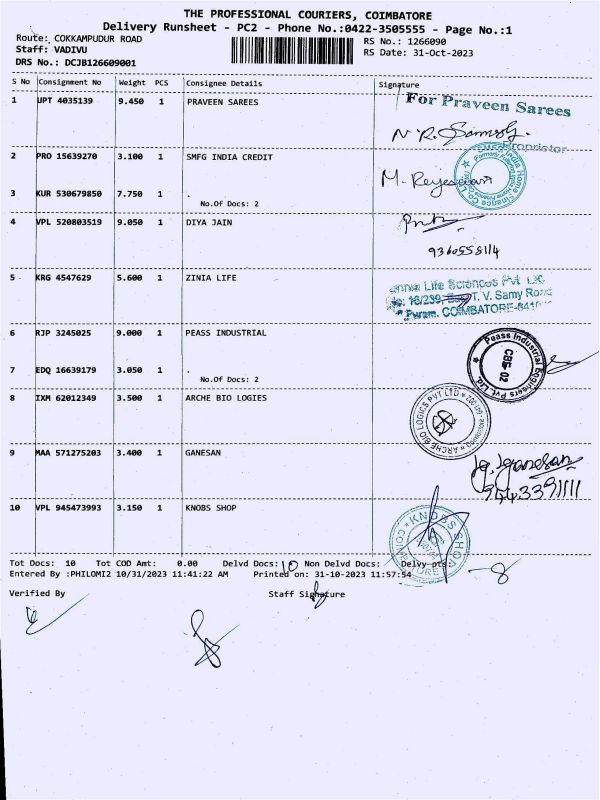 THE PROFESSIONAL COURIERS, COIMBATORE
Delivery Runsheet - PC2 - Phone No.:0422-3505555 - Page No.:1
Route: COKKAMPUDUR ROAD RS No.: 1266090
Staff: VADIVU RS Date: 31-Oct-2023
DRS No.: DCJB126609001
S No Consignment No Weight PCS Consignee Details Signature
1 UPT 4035139 9.450 1 PRAVEEN SAREES
For Praveen Sarees
Proprietor
2 PRO 15639270 3.100 1 SMFG INDIA CREDIT
3 KUR 530679850 7.750 1 .
No.Of Docs: 2
4 VPL 520803519 9.050 1 DIYA JAIN
9360558114
5 KRG 4547629 5.600 1 ZINIA LIFE
Life Sciences Pvt
16/239, T. V. Samy Road
Puram. COIMBATORE-641
6 RJP 3245025 9.000 1 PEASS INDUSTRIAL
Peass Industrial Engineers Pvt. Ltd.
CBE-02
7 EDQ 16639179 3.050 1 .
No.Of Docs: 2
8 IXM 62012349 3.500 1 ARCHE BIO LOGIES
ARCHE BIO LOGICS PVT LTD
9 MAA 571275203 3.400 1 GANESAN
Ganesan
10 VPL 945473993 3.150 1 KNOBS SHOP
KNOBS SHOP
Tot Docs: 10 Tot COD Amt: 0.00 Delvd Docs: 10 Non Delvd Docs: Delvy-pts: 8
Entered By :PHILOMI2 10/31/2023 11:41:22 AM Printed on: 31-10-2023 11:57:54
Verified By Staff Signature